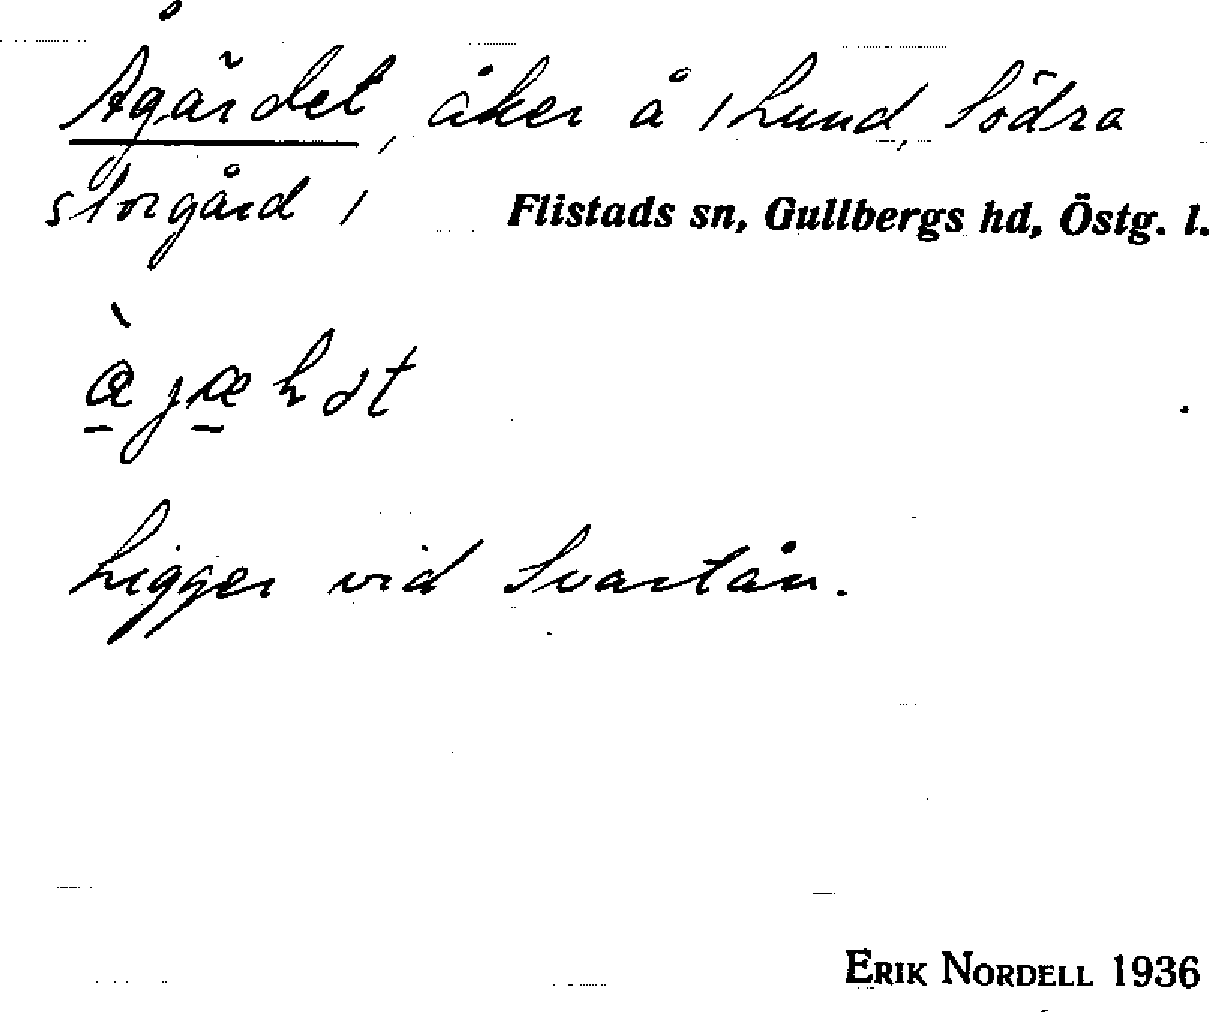 Ågärdet, åker å / Lund, Södra
storgård / Flistads sn, Gullbergs hd, Östg. l.
Ligger vid Svartån.
ERIK NORDELL 1936